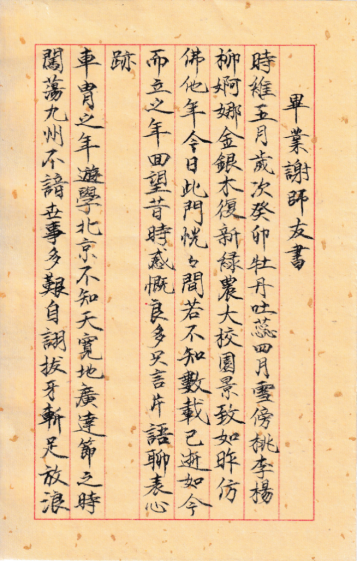 畢業謝師友書
時維五月歲次癸卯牡丹吐蕊四月雪傍桃李楊
柳婀娜金銀木復新綠農大校園景致如昨仿
佛他年今日此門恍々間若不知數載已逝如今
而立之年回望昔時感慨良多只言片語聊表心
跡
車胄之年遊學北京不知天寬地廣達節之時
闖蕩九州不諳世事多艱自詡拔牙斬足放浪